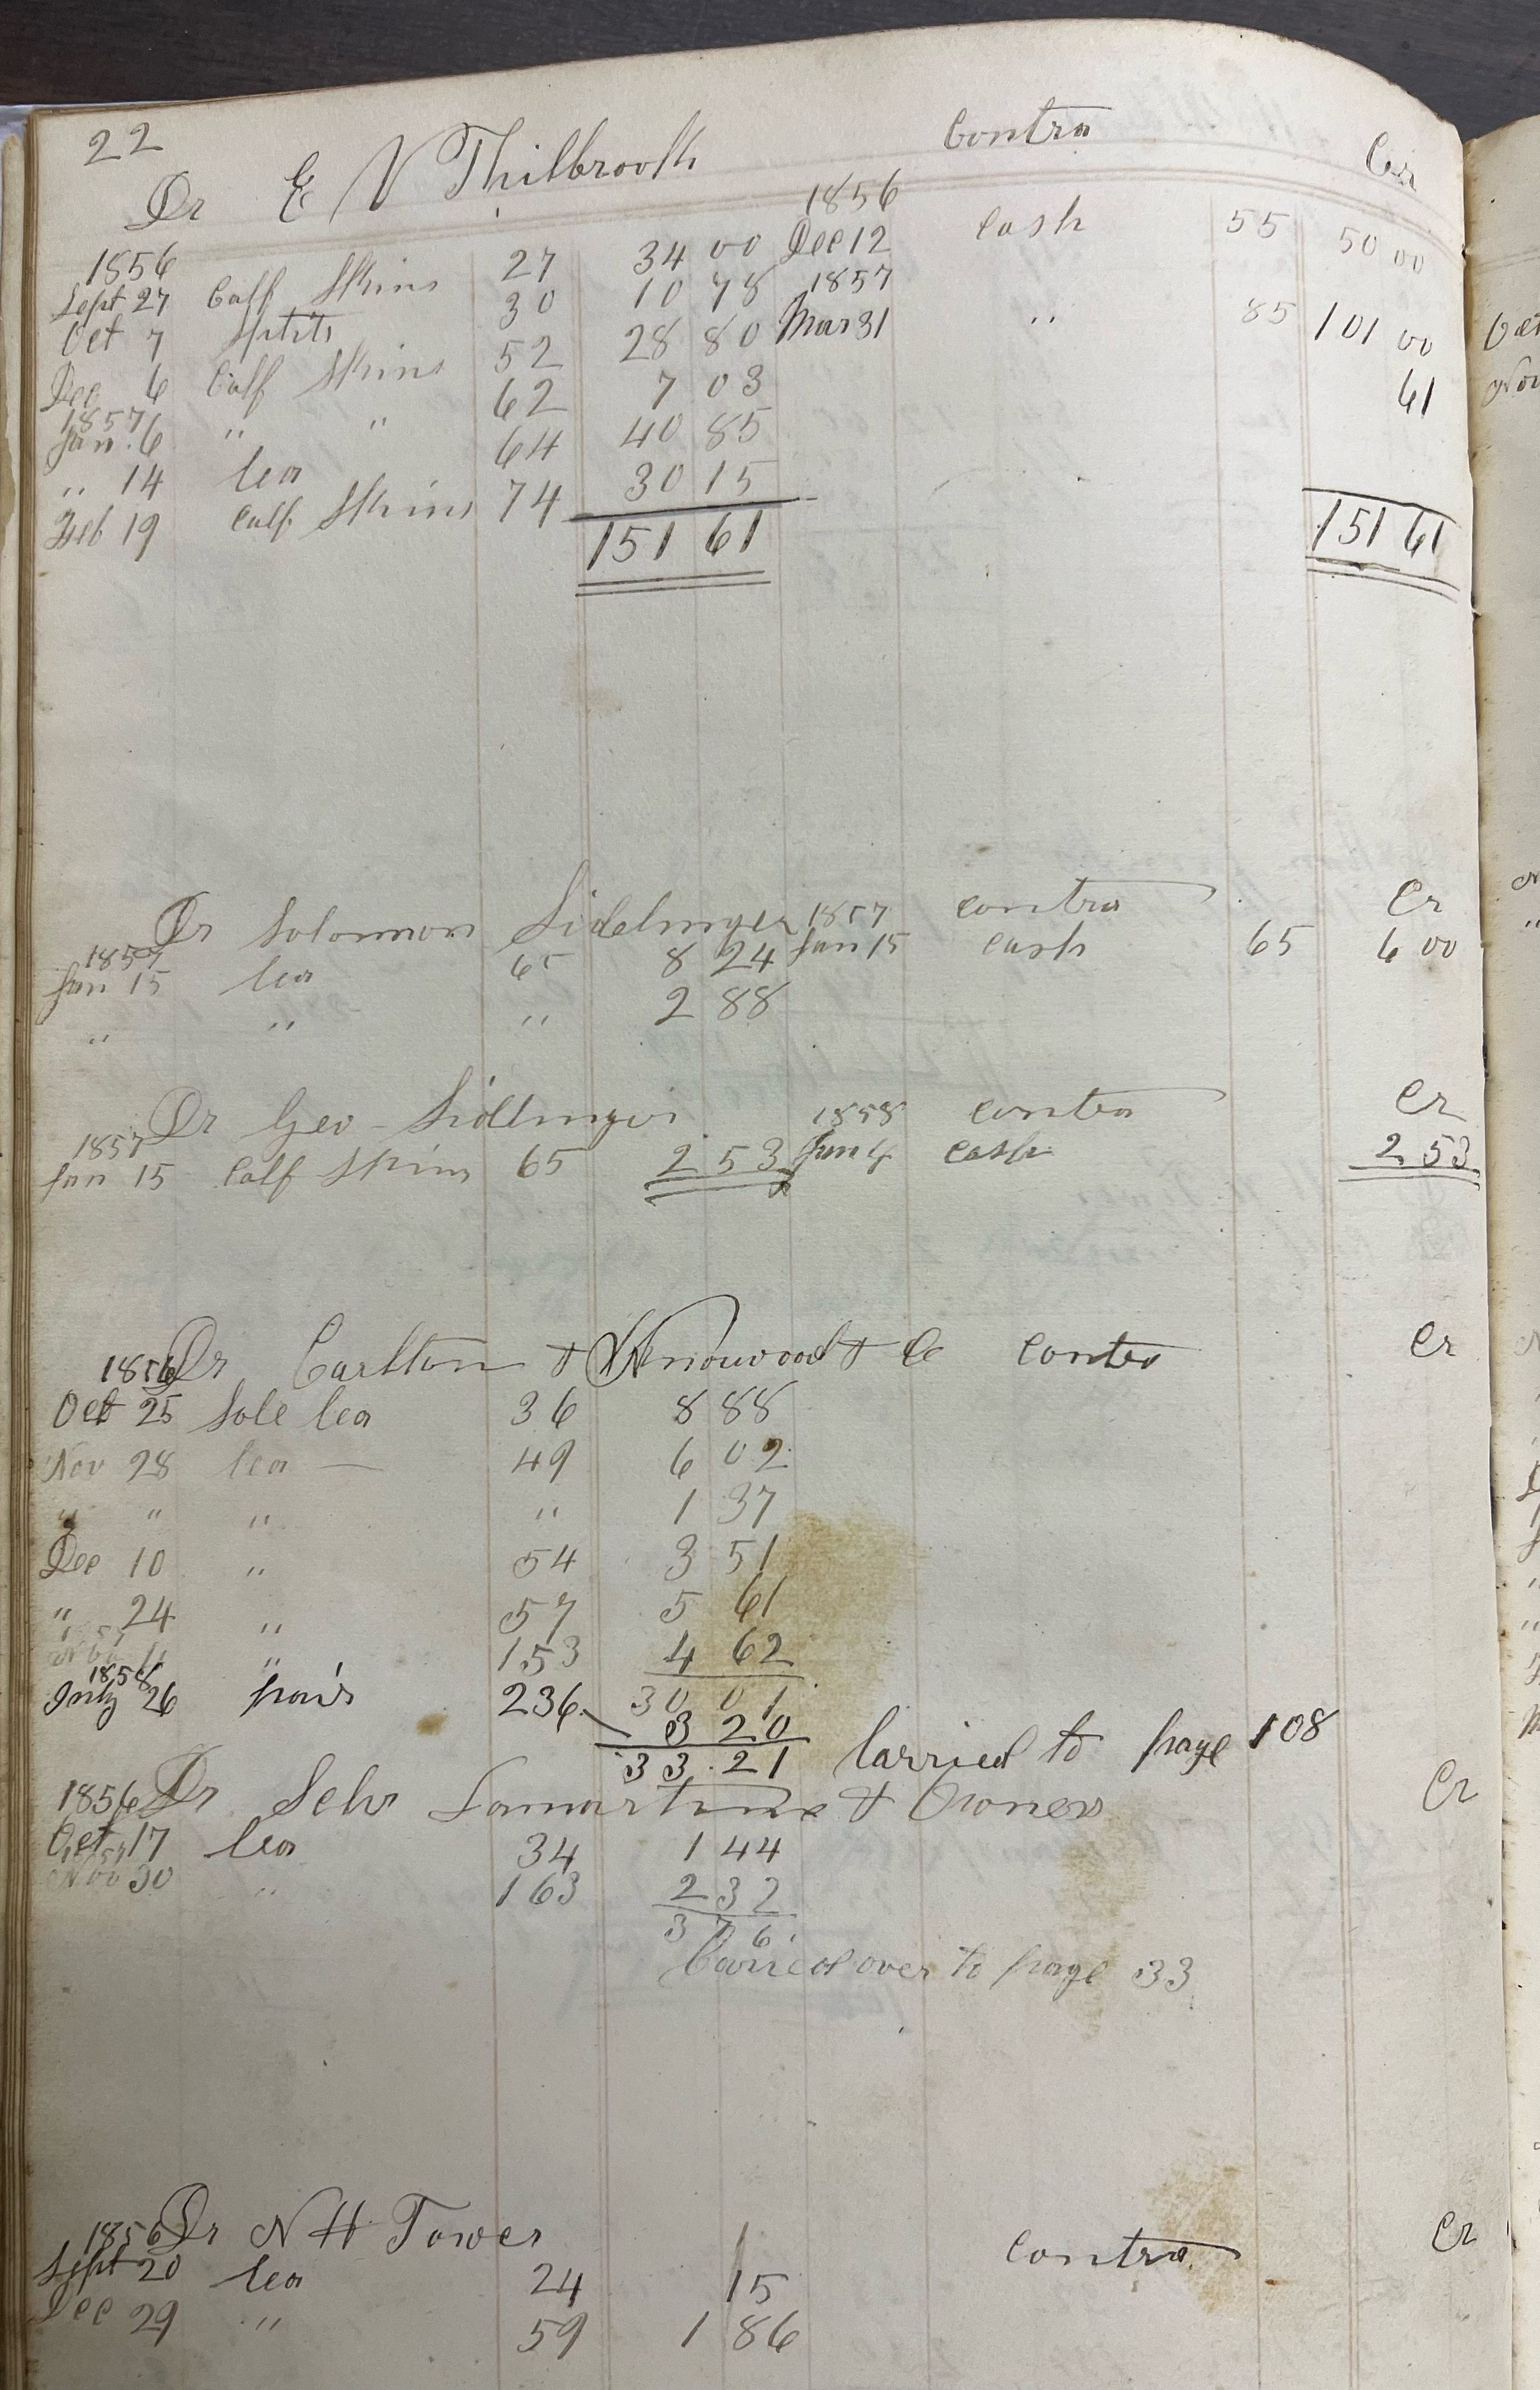 22
Dr E N Philbrook Contra Cr
1856 1856
Sept 27 Calf Skins 27 34 00 Dec 12 cash 55 50 00
Oct 7 Splits 30 10 78 1857
Dec 6 Calf Skins 52 28 80 Mar 31 " 85 101 00
1857 61
Jan. 6 " " 62 7 03
" 14 lea 64 40 85
Feb 19 Calf Skins 74 30 15
151 61 151 61
Dr Solomon Sidelinger 1857 contra Cr
1857
Jan 15 lea 65 8 24 Jan 15 cash 65 6 00
" " " 2 88
Dr Geo Sidlinger 1858 contra Cr
1857
Jan 15 Calf Skins 65 2 53 Jan 4 cash 2 53
1856 Dr Carlton & Norwood & Co Contra Cr
Oct 25 Sole lea 36 8 88
Nov 28 lea — 49 6 02
" " " " 1 37
Dec 10 " 54 3 51
" 24 " 57 5 61
1857
Nov " 153 4 62
1858 30 01
July 26 pair 236 3 20
33.21 Carried to page 108
1856 Dr Schr Lamartine & Owners Cr
Oct 17 lea 34 1 44
1857
Nov 30 " 163 2 32
3 76
Carried over to page 33
1856 Dr N H Tower contra Cr
Sept 20 lea 24 15
Dec 29 " 59 1 86
Oct
Nov